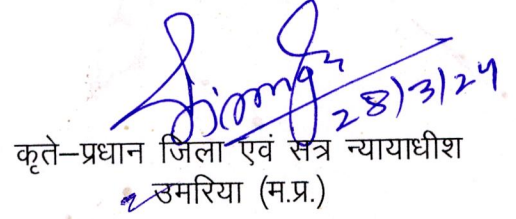 28/3/24
कृते–प्रधान जिला एवं सत्र न्यायाधीश
उमरिया (म.प्र.)